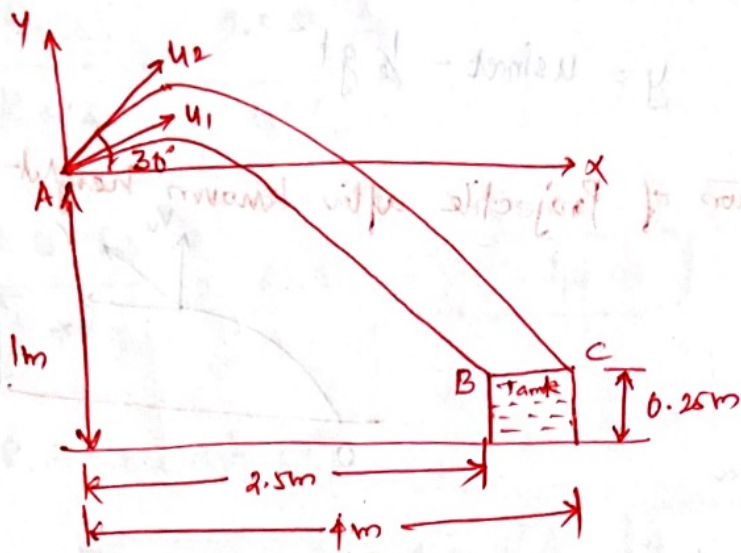 Y
u2
u1
30°
x
A
1m
B
C
Tank
0.25m
2.5m
4m